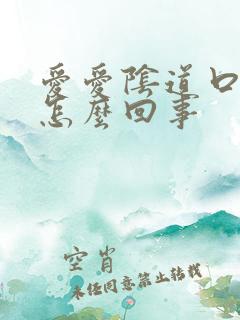 愛愛陰道口
怎麼回事
空肖
未经同意禁止转载